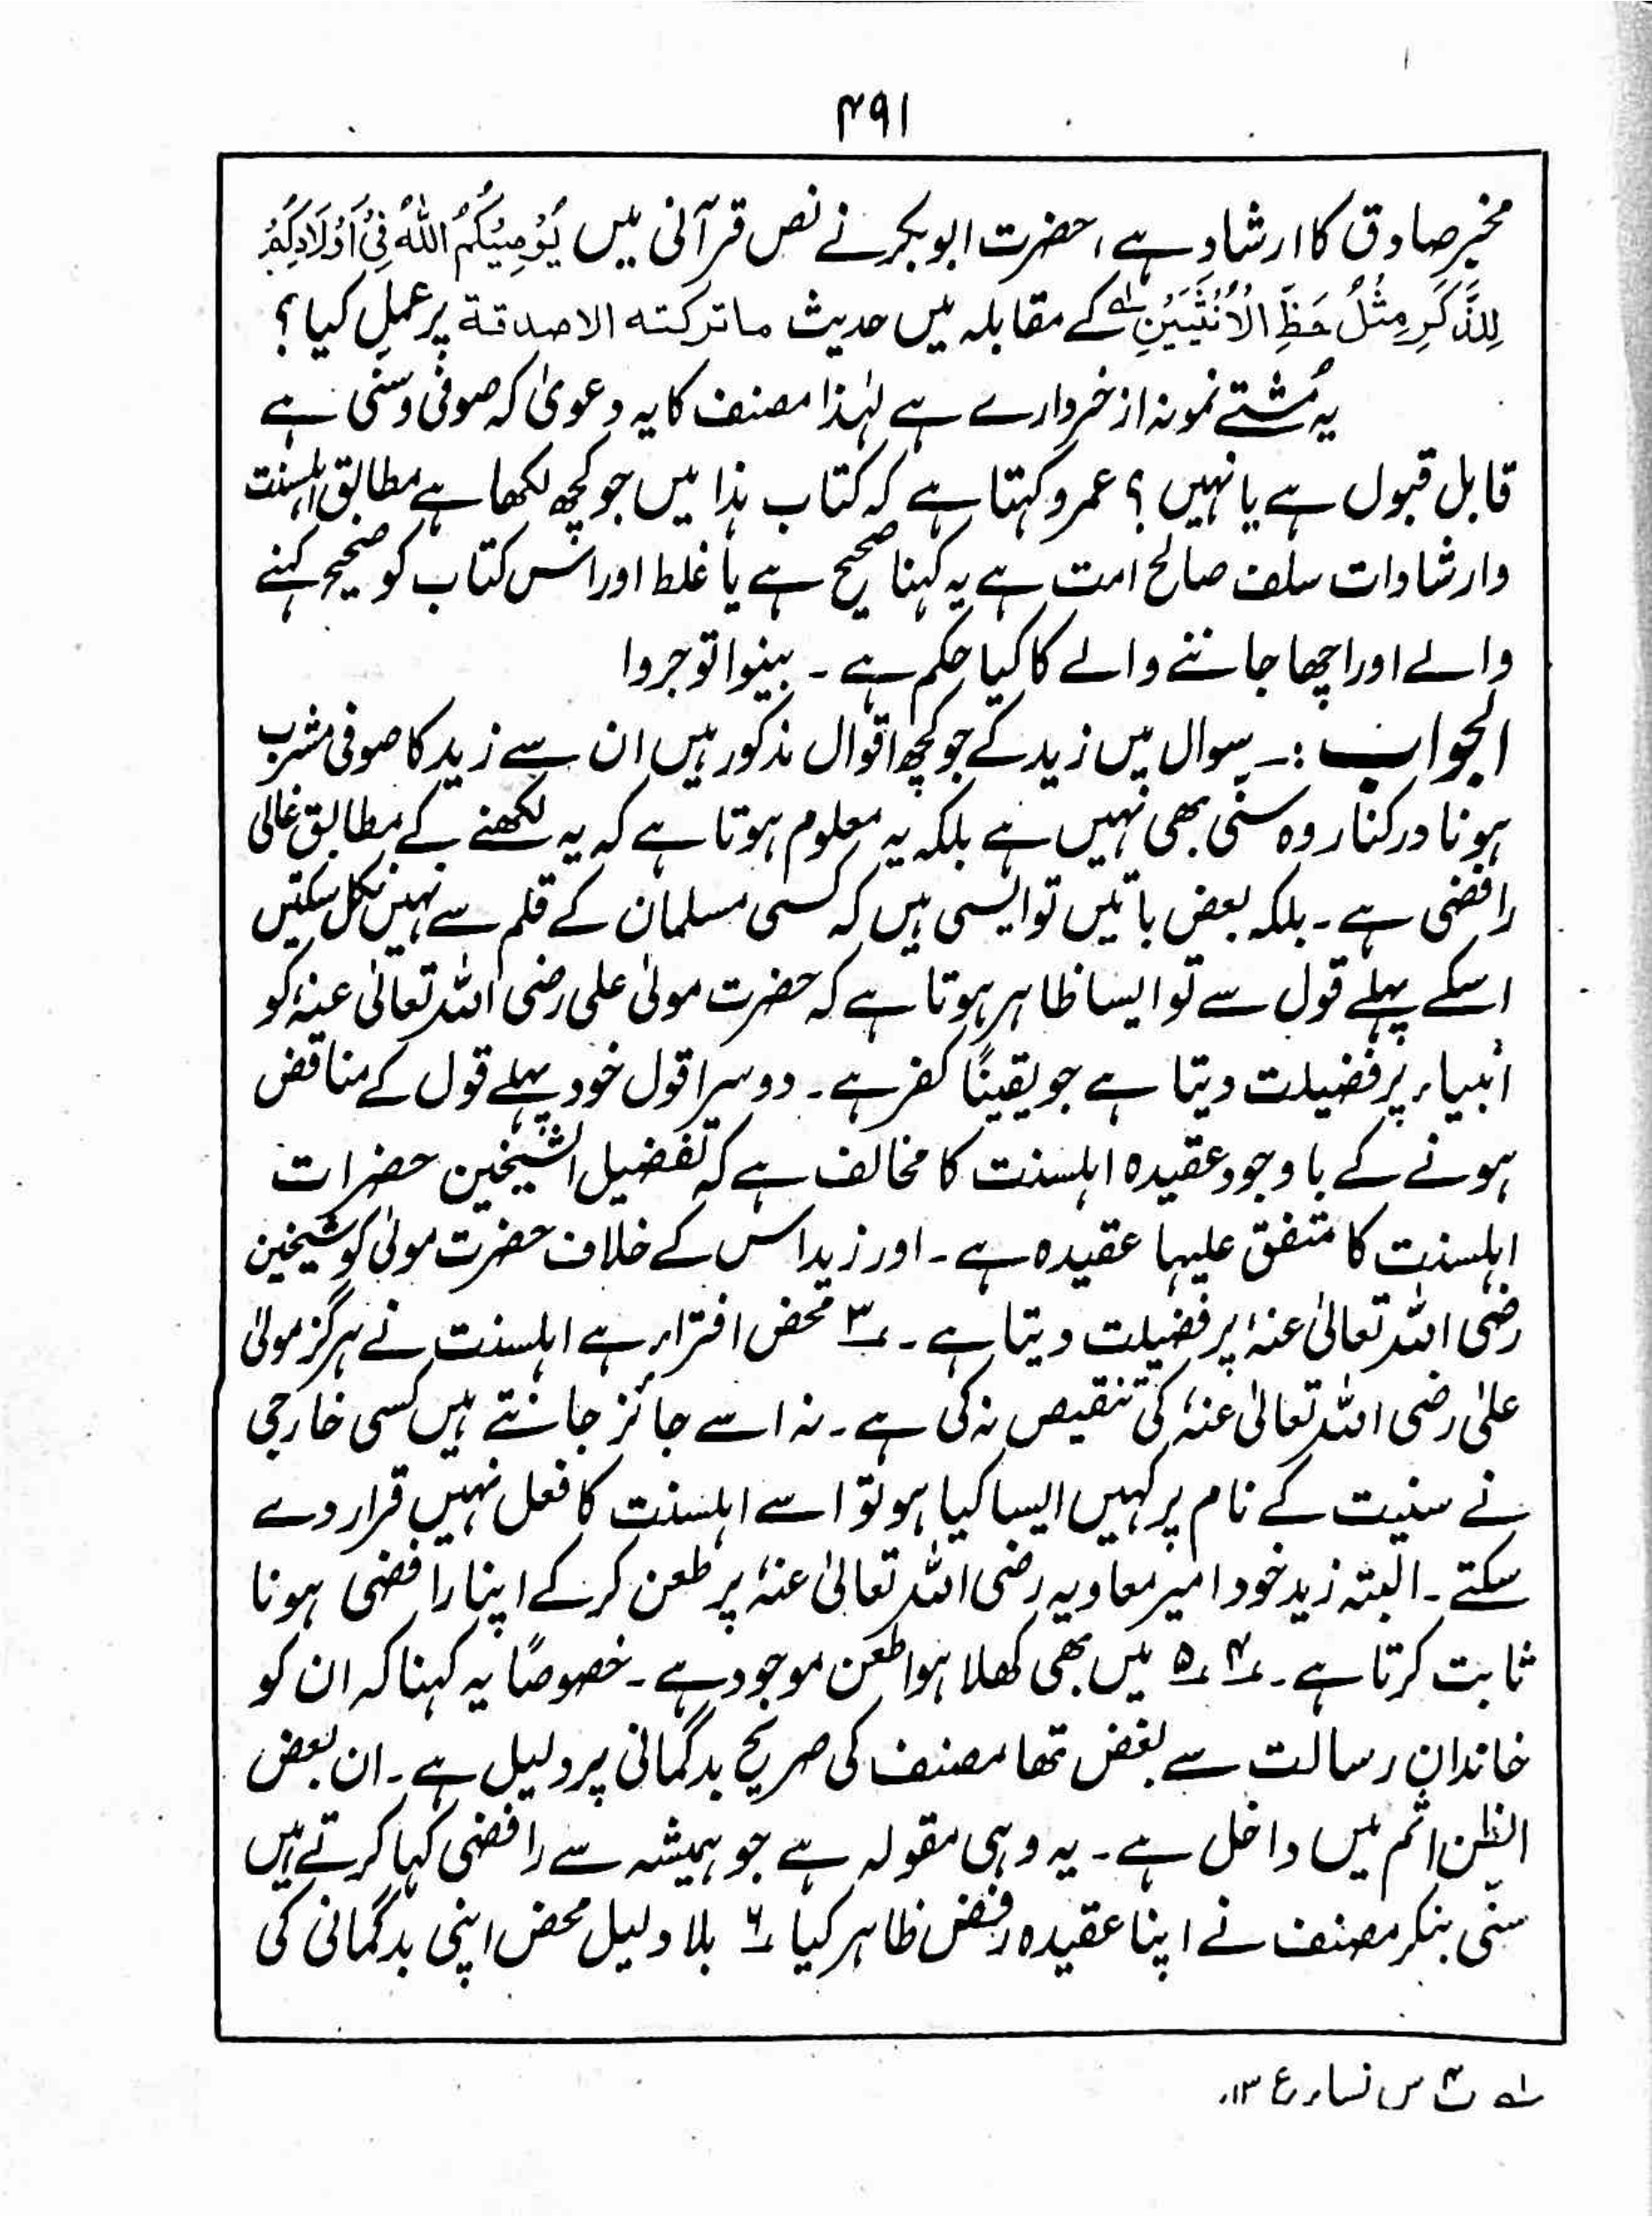 ۴۹۱
مخبر صادق کا ارشاد ہے، حضرت ابوبکر نے نص قرآنی میں یُوْصِیْکُمُ اللّٰهُ فِیْ اَوْلَادِکُمْ
لِلذَّکَرِ مِثْلُ حَظِّ الْاُنْثَیَیْنِ ؎۱ کے مقابلہ میں حدیث ماترکته الاصدقة پر عمل کیا؟
یہ مُشتے نمونہ از خروارے ہے لہٰذا مصنف کا یہ دعویٰ کہ صوفی و سنی ہے
قابل قبول ہے یا نہیں؟ عمرو کہتا ہے کہ کتاب ہذا میں جو کچھ لکھا ہے مطابق اہلسنت
وارشادات سلف صالح امت ہے یہ کہنا صحیح ہے یا غلط اور اس کتاب کو صحیح کہنے
والے اور اچھا جاننے والے کا کیا حکم ہے۔ بینوا توجروا
الجواب :۔ سوال میں زید کے جو کچھ اقوال مذکور ہیں ان سے زید کا صوفی مشرب
ہونا درکنار وہ سنی بھی نہیں ہے بلکہ یہ معلوم ہوتا ہے کہ یہ لکھنے کے مطابق غالی
رافضی ہے۔ بلکہ بعض باتیں تو ایسی ہیں کہ کسی مسلمان کے قلم سے نہیں نکل سکتیں
اسکے پہلے قول سے تو ایسا ظاہر ہوتا ہے کہ حضرت مولیٰ علی رضی اللہ تعالیٰ عنہٗ کو
انبیاء پر فضیلت دیتا ہے جو یقیناً کفر ہے۔ دوسرا قول خود پہلے قول کے مناقض
ہونے کے باوجود عقیدہ اہلسنت کا مخالف ہے کہ تفضیل الشیخین حضرات
اہلسنت کا متفق علیہا عقیدہ ہے۔ اور زید اس کے خلاف حضرت مولیٰ کو شیخین
رضی اللہ تعالیٰ عنہٗ پر فضیلت دیتا ہے۔ ۳؎ محض افتراء ہے اہلسنت نے ہرگز مولیٰ
علیٰ رضی اللہ تعالیٰ عنہٗ کی تنقیص نہ کی ہے۔ نہ اسے جائز جانتے ہیں کسی خارجی
نے سنیت کے نام پر کہیں ایسا کیا ہو تو اسے اہلسنت کا فعل نہیں قرار دے
سکتے۔ البتہ زید خود امیر معاویہ رضی اللہ تعالیٰ عنہٗ پر طعن کر کے اپنا رافضی ہونا
ثابت کرتا ہے۔ ۴؎ ۵؎ میں بھی کھلا ہوا طعن موجود ہے۔ خصوصًا یہ کہنا کہ ان کو
خاندانِ رسالت سے بغض تھا مصنف کی صریح بدگمانی پر دلیل ہے۔ ان بعض
الظن اثم میں داخل ہے۔ یہ وہی مقولہ ہے جو ہمیشہ سے رافضی کہا کرتے ہیں
سنّی بنکر مصنف نے اپنا عقیدہ رفض ظاہر کیا ۶؎ بلا دلیل محض اپنی بدگمانی کی
؎۱ پ۴ س نساء ع ۱۳۔